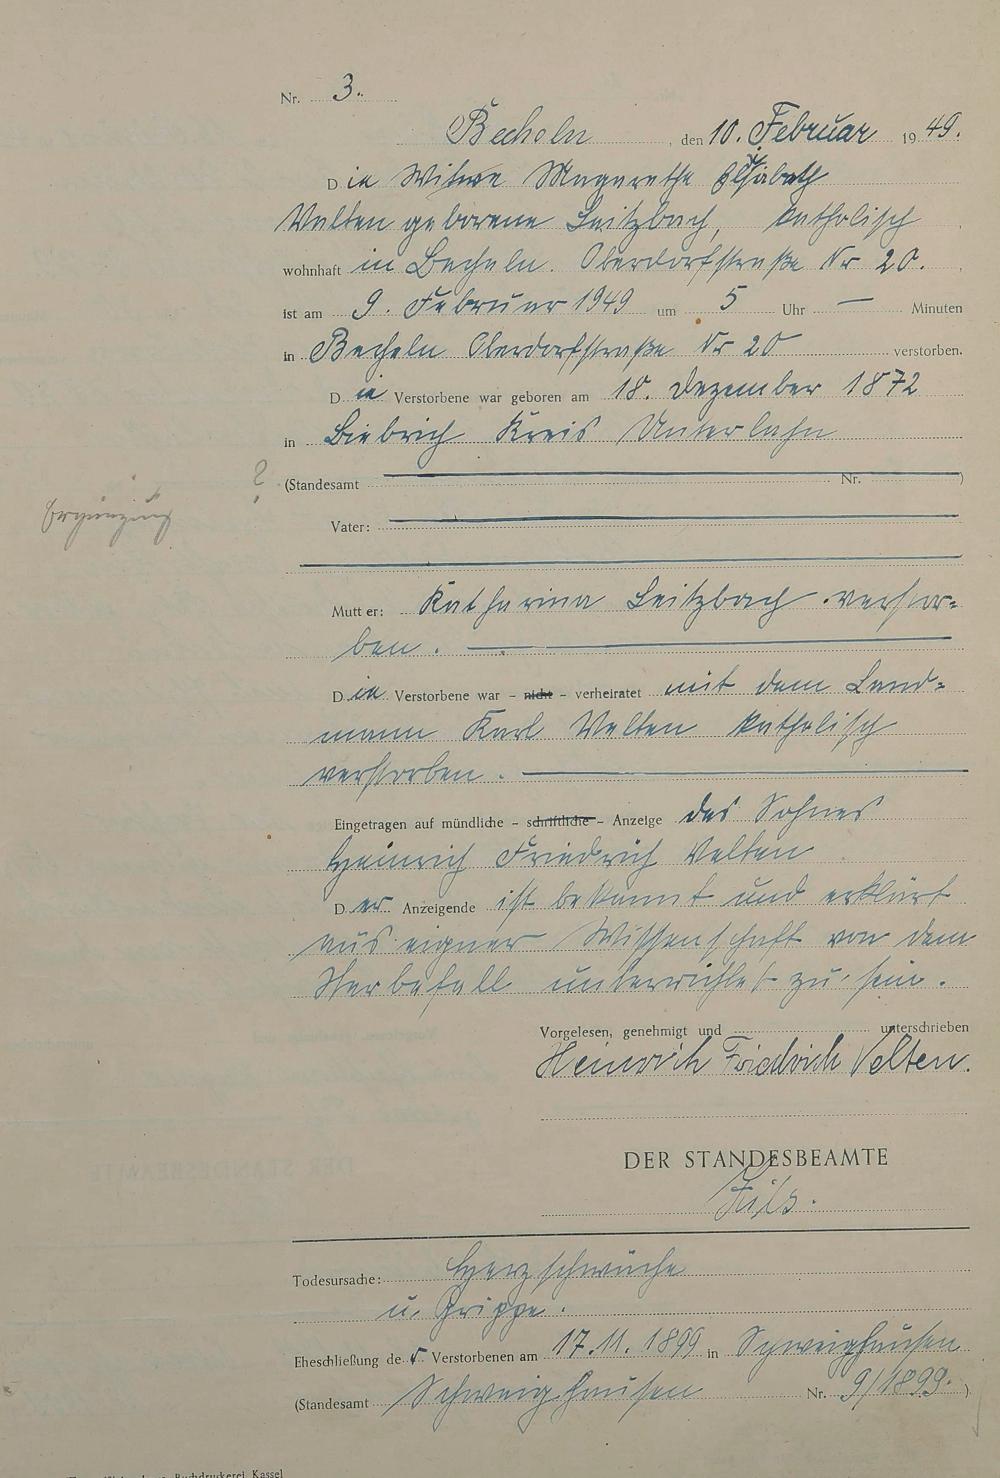 Nr. 3.
Becheln, den 10. Februar 1949.
Die Witwe Magarethe Elisabeth
Velten geborene Leitzbach, katholisch
wohnhaft in Becheln. Oberdorfstraße Nr 20.
ist am 9. Februar 1949 um 5 Uhr — Minuten
in Becheln Oberdorfstraße Nr 20 verstorben.
Die Verstorbene war geboren am 18. Dezember 1872
in Biebrich Kreis Unterlahn
(Standesamt Nr. )
?
Ergänzung
Vater:
Mutter: Katharina Leitzbach verstor-
ben.
Die Verstorbene war – nicht – verheiratet mit dem Land-
mann Karl Velten katholisch
verstorben.
Eingetragen auf mündliche – schriftliche – Anzeige des Sohnes
Heinrich Friedrich Velten
Der Anzeigende ist bekannt und erklärt
aus eigner Wissenschaft von dem
Sterbefall unterrichtet zu sein.
Vorgelesen, genehmigt und unterschrieben
Heinrich Friedrich Velten.
DER STANDESBEAMTE
Todesursache: Herzschwäche
u. Grippe.
Eheschließung der Verstorbenen am 17.11.1899 in Schweighausen
(Standesamt Schweighausen Nr. 9/1899.)
Buchdruckerei Kassel